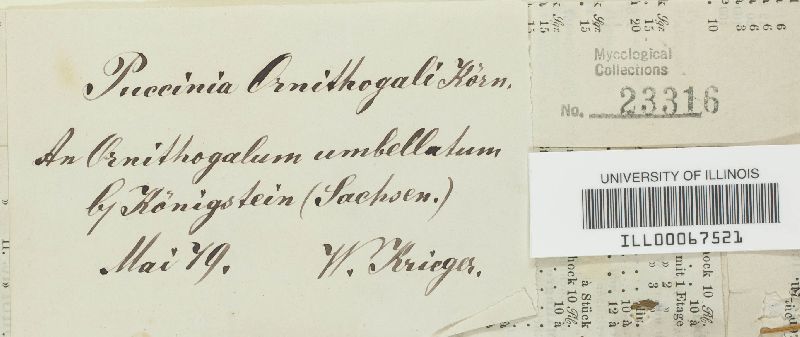 Puccinia Ornithogali Körn.
An Ornithogalum umbellatum
b/ Königstein (Sachsen.)
Mai 79. W. Krieger.
Mycological
Collections
No. 23316
UNIVERSITY OF ILLINOIS
ILL00067521
mit 1 Etage
à Stück